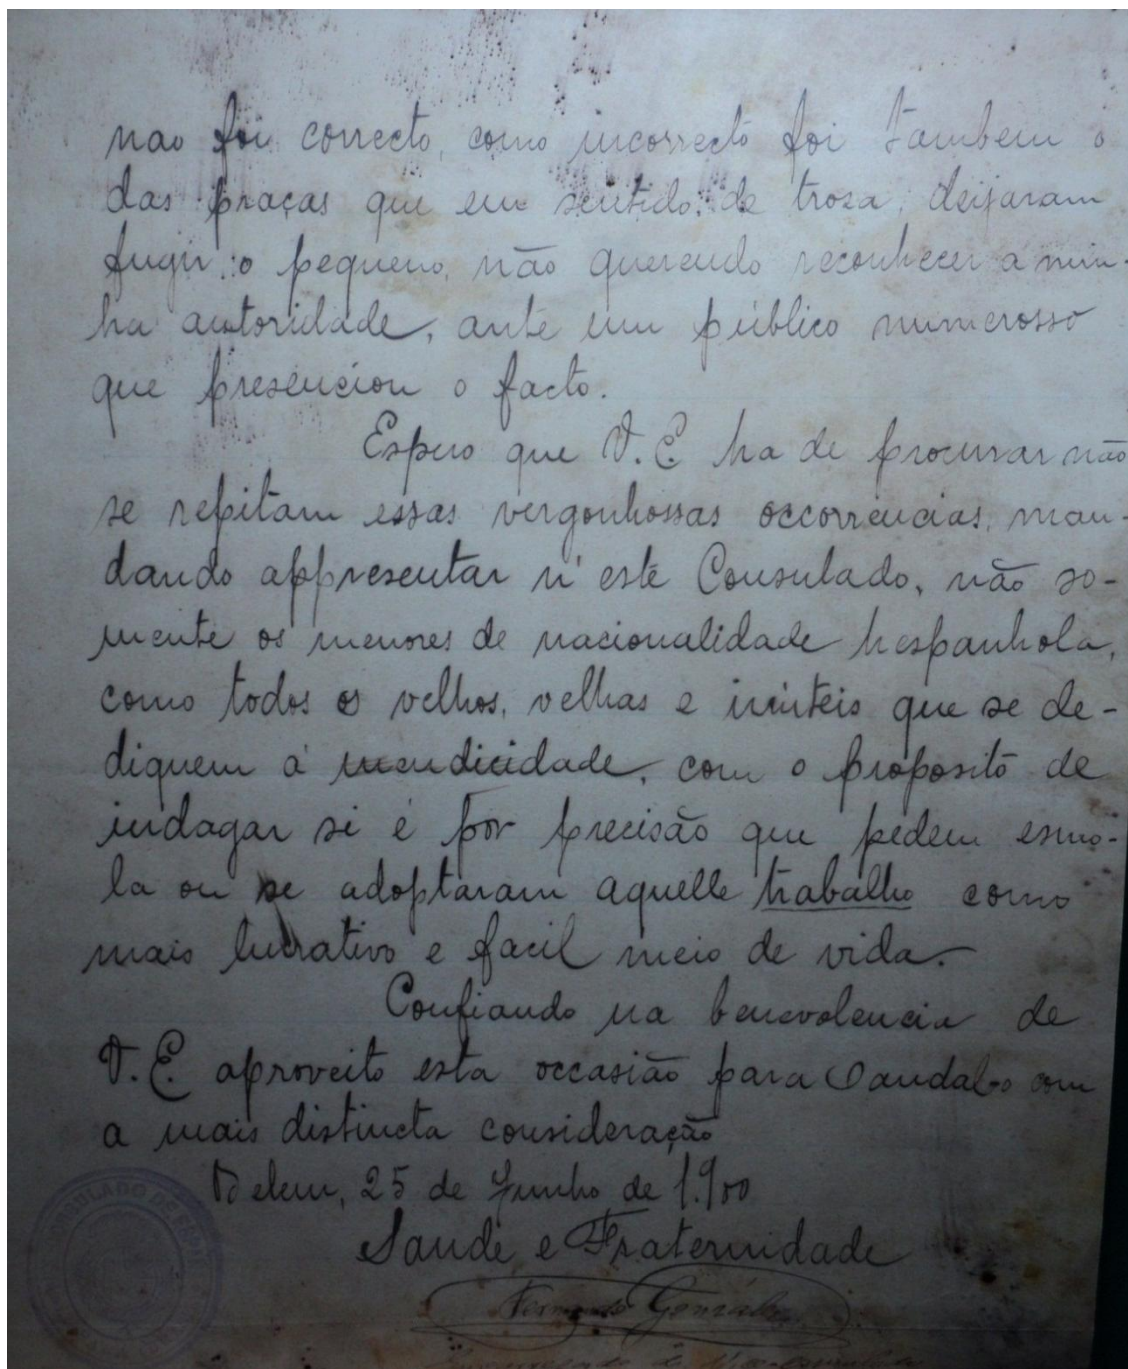 nao foi correcto, como incorrecto foi tambem o
das praças que em sentido de troza, deijaram
fugir o pequeno, não querendo reconhecer a min-
ha autoridade, ante um público numerosso
que presenciou o facto.
Espero que V. E ha de procurar não
se repitam essas vergonhossas occorrencias, man-
dando appresentar n'este Consulado, não so-
mente os menores de nacionalidade hespanhola,
como todos os velhos, velhas e inúteis que se de-
diquem á mendicidade, com o proposito de
indagar si é por precisão que pedem esmo-
la ou se adoptaram aquelle trabalho como
mais lucrativo e facil meio de vida.
Confiando na benevolencia de
V. E. aproveito esta occasião para saudal-o com
a mais distincta consideração
Belem, 25 de Junho de 1.900
Saude e Fraternidade
CONSULADO DE ESPAÑA